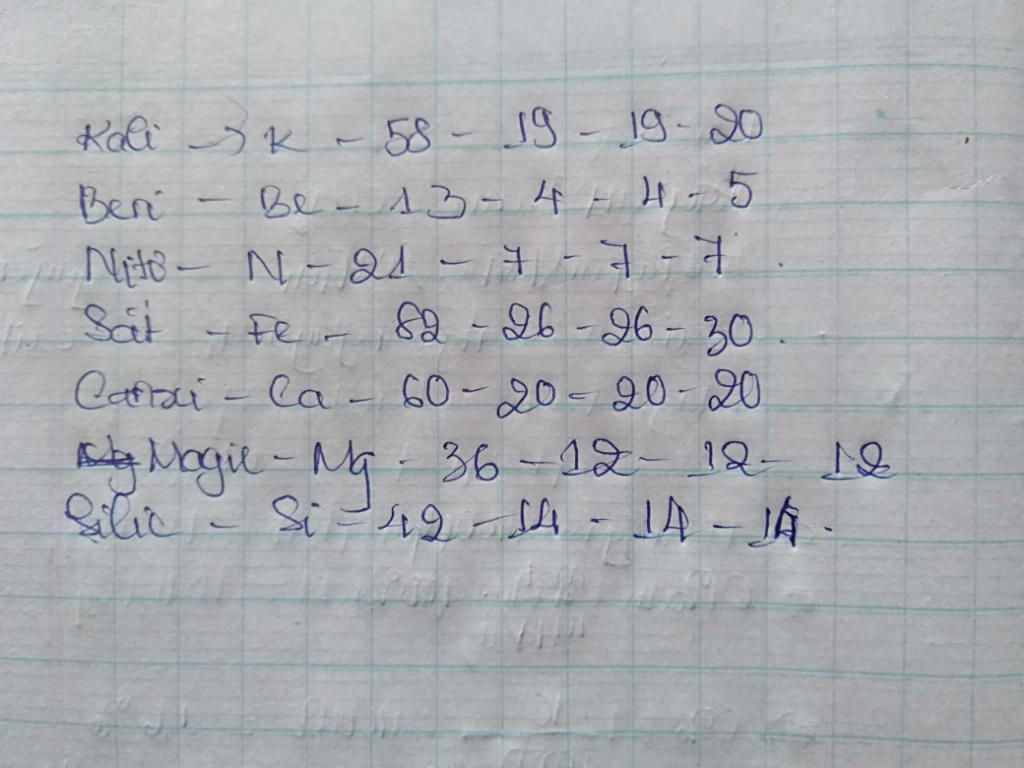 Kali → K - 58 - 19 - 19 - 20
Beri - Be - 13 - 4 - 4 - 5
Nitơ - N - 21 - 7 - 7 - 7 .
Sắt - Fe - 82 - 26 - 26 - 30 .
Canxi - Ca - 60 - 20 - 20 - 20
Magie - Mg - 36 - 12 - 12 - 12
Silic - Si - 42 - 14 - 14 - 14 .